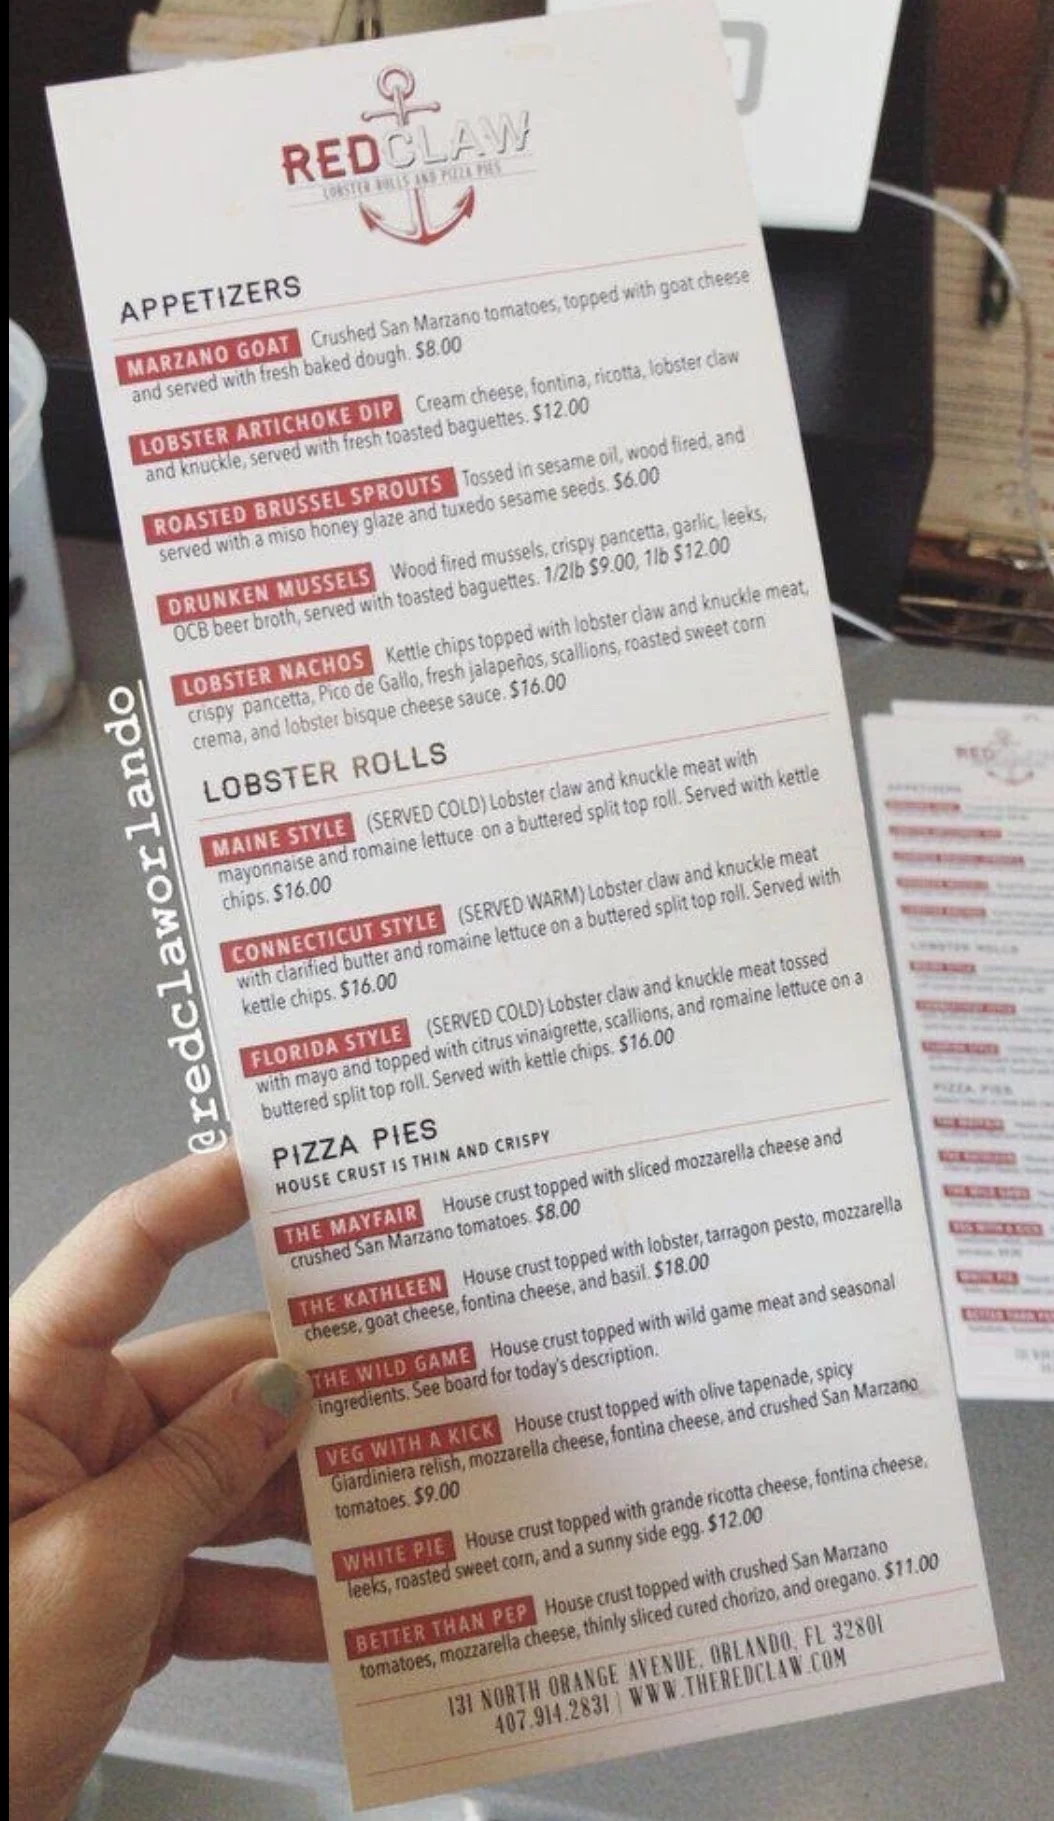 REDCLAW
LOBSTER ROLLS AND PIZZA PIES
APPETIZERS
MARZANO GOAT Crushed San Marzano tomatoes, topped with goat cheese
and served with fresh baked dough. $8.00
LOBSTER ARTICHOKE DIP Cream cheese, fontina, ricotta, lobster claw
and knuckle, served with fresh toasted baguettes. $12.00
ROASTED BRUSSEL SPROUTS Tossed in sesame oil, wood fired, and
served with a miso honey glaze and tuxedo sesame seeds. $6.00
DRUNKEN MUSSELS Wood fired mussels, crispy pancetta, garlic, leeks,
OCB beer broth, served with toasted baguettes. 1/2lb $9.00, 1lb $12.00
LOBSTER NACHOS Kettle chips topped with lobster claw and knuckle meat,
crispy pancetta, Pico de Gallo, fresh jalapeños, scallions, roasted sweet corn
crema, and lobster bisque cheese sauce. $16.00
LOBSTER ROLLS
MAINE STYLE (SERVED COLD) Lobster claw and knuckle meat with
mayonnaise and romaine lettuce on a buttered split top roll. Served with kettle
chips. $16.00
CONNECTICUT STYLE (SERVED WARM) Lobster claw and knuckle meat
with clarified butter and romaine lettuce on a buttered split top roll. Served with
kettle chips. $16.00
FLORIDA STYLE (SERVED COLD) Lobster claw and knuckle meat tossed
with mayo and topped with citrus vinaigrette, scallions, and romaine lettuce on a
buttered split top roll. Served with kettle chips. $16.00
PIZZA PIES
HOUSE CRUST IS THIN AND CRISPY
THE MAYFAIR House crust topped with sliced mozzarella cheese and
crushed San Marzano tomatoes. $8.00
THE KATHLEEN House crust topped with lobster, tarragon pesto, mozzarella
cheese, goat cheese, fontina cheese, and basil. $18.00
THE WILD GAME House crust topped with wild game meat and seasonal
ingredients. See board for today's description.
VEG WITH A KICK House crust topped with olive tapenade, spicy
Giardiniera relish, mozzarella cheese, fontina cheese, and crushed San Marzano
tomatoes. $9.00
WHITE PIE House crust topped with grande ricotta cheese, fontina cheese,
leeks, roasted sweet corn, and a sunny side egg. $12.00
BETTER THAN PEP House crust topped with crushed San Marzano
tomatoes, mozzarella cheese, thinly sliced cured chorizo, and oregano. $11.00
131 NORTH ORANGE AVENUE, ORLANDO, FL 32801
407.914.2831 | WWW.THEREDCLAW.COM
@redclaworlando
RED
APPETIZERS
LOBSTER ROLLS
MAINE STYLE
CONNECTICUT STYLE
FLORIDA STYLE
PIZZA PIES
THE MAYFAIR
THE KATHLEEN
THE WILD GAME
VEG WITH A KICK
WHITE PIE
BETTER THAN PE